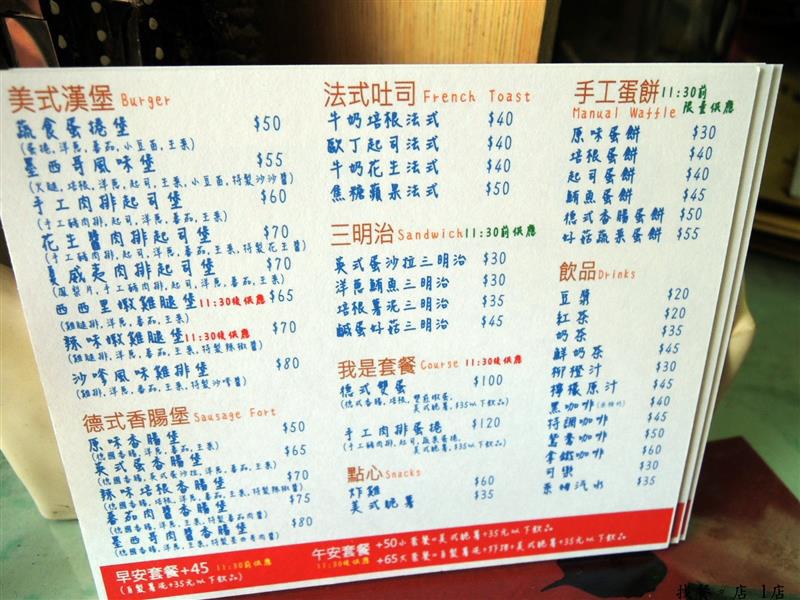 美式漢堡 Burger
蔬食蛋捲堡 $50
(蛋捲,洋蔥,番茄,小豆苗,生菜)
墨西哥風味堡 $55
(火腿,培根,洋蔥,起司,生菜,小豆苗,特製沙沙醬)
手工肉排起司堡 $60
(手工豬肉排,起司,洋蔥,番茄,生菜)
花生醬肉排起司堡 $70
(手工豬肉排,起司,洋蔥,番茄,生菜,特製花生醬)
夏威夷肉排起司堡 $70
(鳳梨片,手工豬肉排,起司,洋蔥,番茄,生菜)
西西里嫩雞腿堡 11:30後供應 $65
(雞腿排,洋蔥,番茄,生菜)
辣味嫩雞腿堡 11:30後供應 $70
(雞腿排,洋蔥,番茄,生菜,特製辣椒醬)
沙嗲風味雞排堡 $80
(雞排,洋蔥,番茄,生菜,特製沙嗲醬)
德式香腸堡 Sausage Fort
原味香腸堡 $50
(德國香腸,洋蔥,番茄,生菜)
美式蛋香腸堡 $65
(德國香腸,美式蛋沙拉,洋蔥,番茄,生菜)
辣味培根香腸堡 $70
(德國香腸,培根,洋蔥,番茄,生菜,特製辣椒醬)
番茄肉醬香腸堡 $75
(德國香腸,洋蔥,番茄,生菜,特製番茄肉醬)
墨西哥肉醬香腸堡 $80
(德國香腸,洋蔥,番茄,生菜,特製墨西哥肉醬)
法式吐司 French Toast
牛奶培根法式 $40
歐丁起司法式 $40
牛奶花生法式 $40
焦糖蘋果法式 $50
三明治 Sandwich 11:30前供應
美式蛋沙拉三明治 $30
洋蔥鮪魚三明治 $30
培根薯泥三明治 $35
鹹蛋好菇三明治 $45
我是套餐 Course 11:30後供應
德式雙蛋 $100
美式脆薯,$35以下飲品)
手工肉排蛋捲 $120
(手工豬肉排,起司,蔬菜蛋捲,
美式脆薯,$35以下飲品)
點心 Snacks
炸雞 $60
美式脆薯 $35
手工蛋餅 11:30前
Manual Waffle 限量供應
原味蛋餅 $30
培根蛋餅 $40
起司蛋餅 $40
鮪魚蛋餅 $45
德式香腸蛋餅 $50
好菇蔬菜蛋餅 $55
飲品 Drinks
豆漿 $20
紅茶 $20
奶茶 $35
鮮奶茶 $45
柳橙汁 $30
檸檬原汁 $45
黑咖啡 $40
特調咖啡 $45
鴛鴦咖啡 $50
拿鐵咖啡 $60
可樂 $30
汽水 $35
早安套餐+45 11:30前供應
(自製薯泥+35元以下飲品)
午安套餐 +50小套餐=美式脆薯+35元以下飲品
11:30後供應 +65大套餐=自製薯泥+沙拉+美式脆薯+35元以下飲品
找餐。店 1店